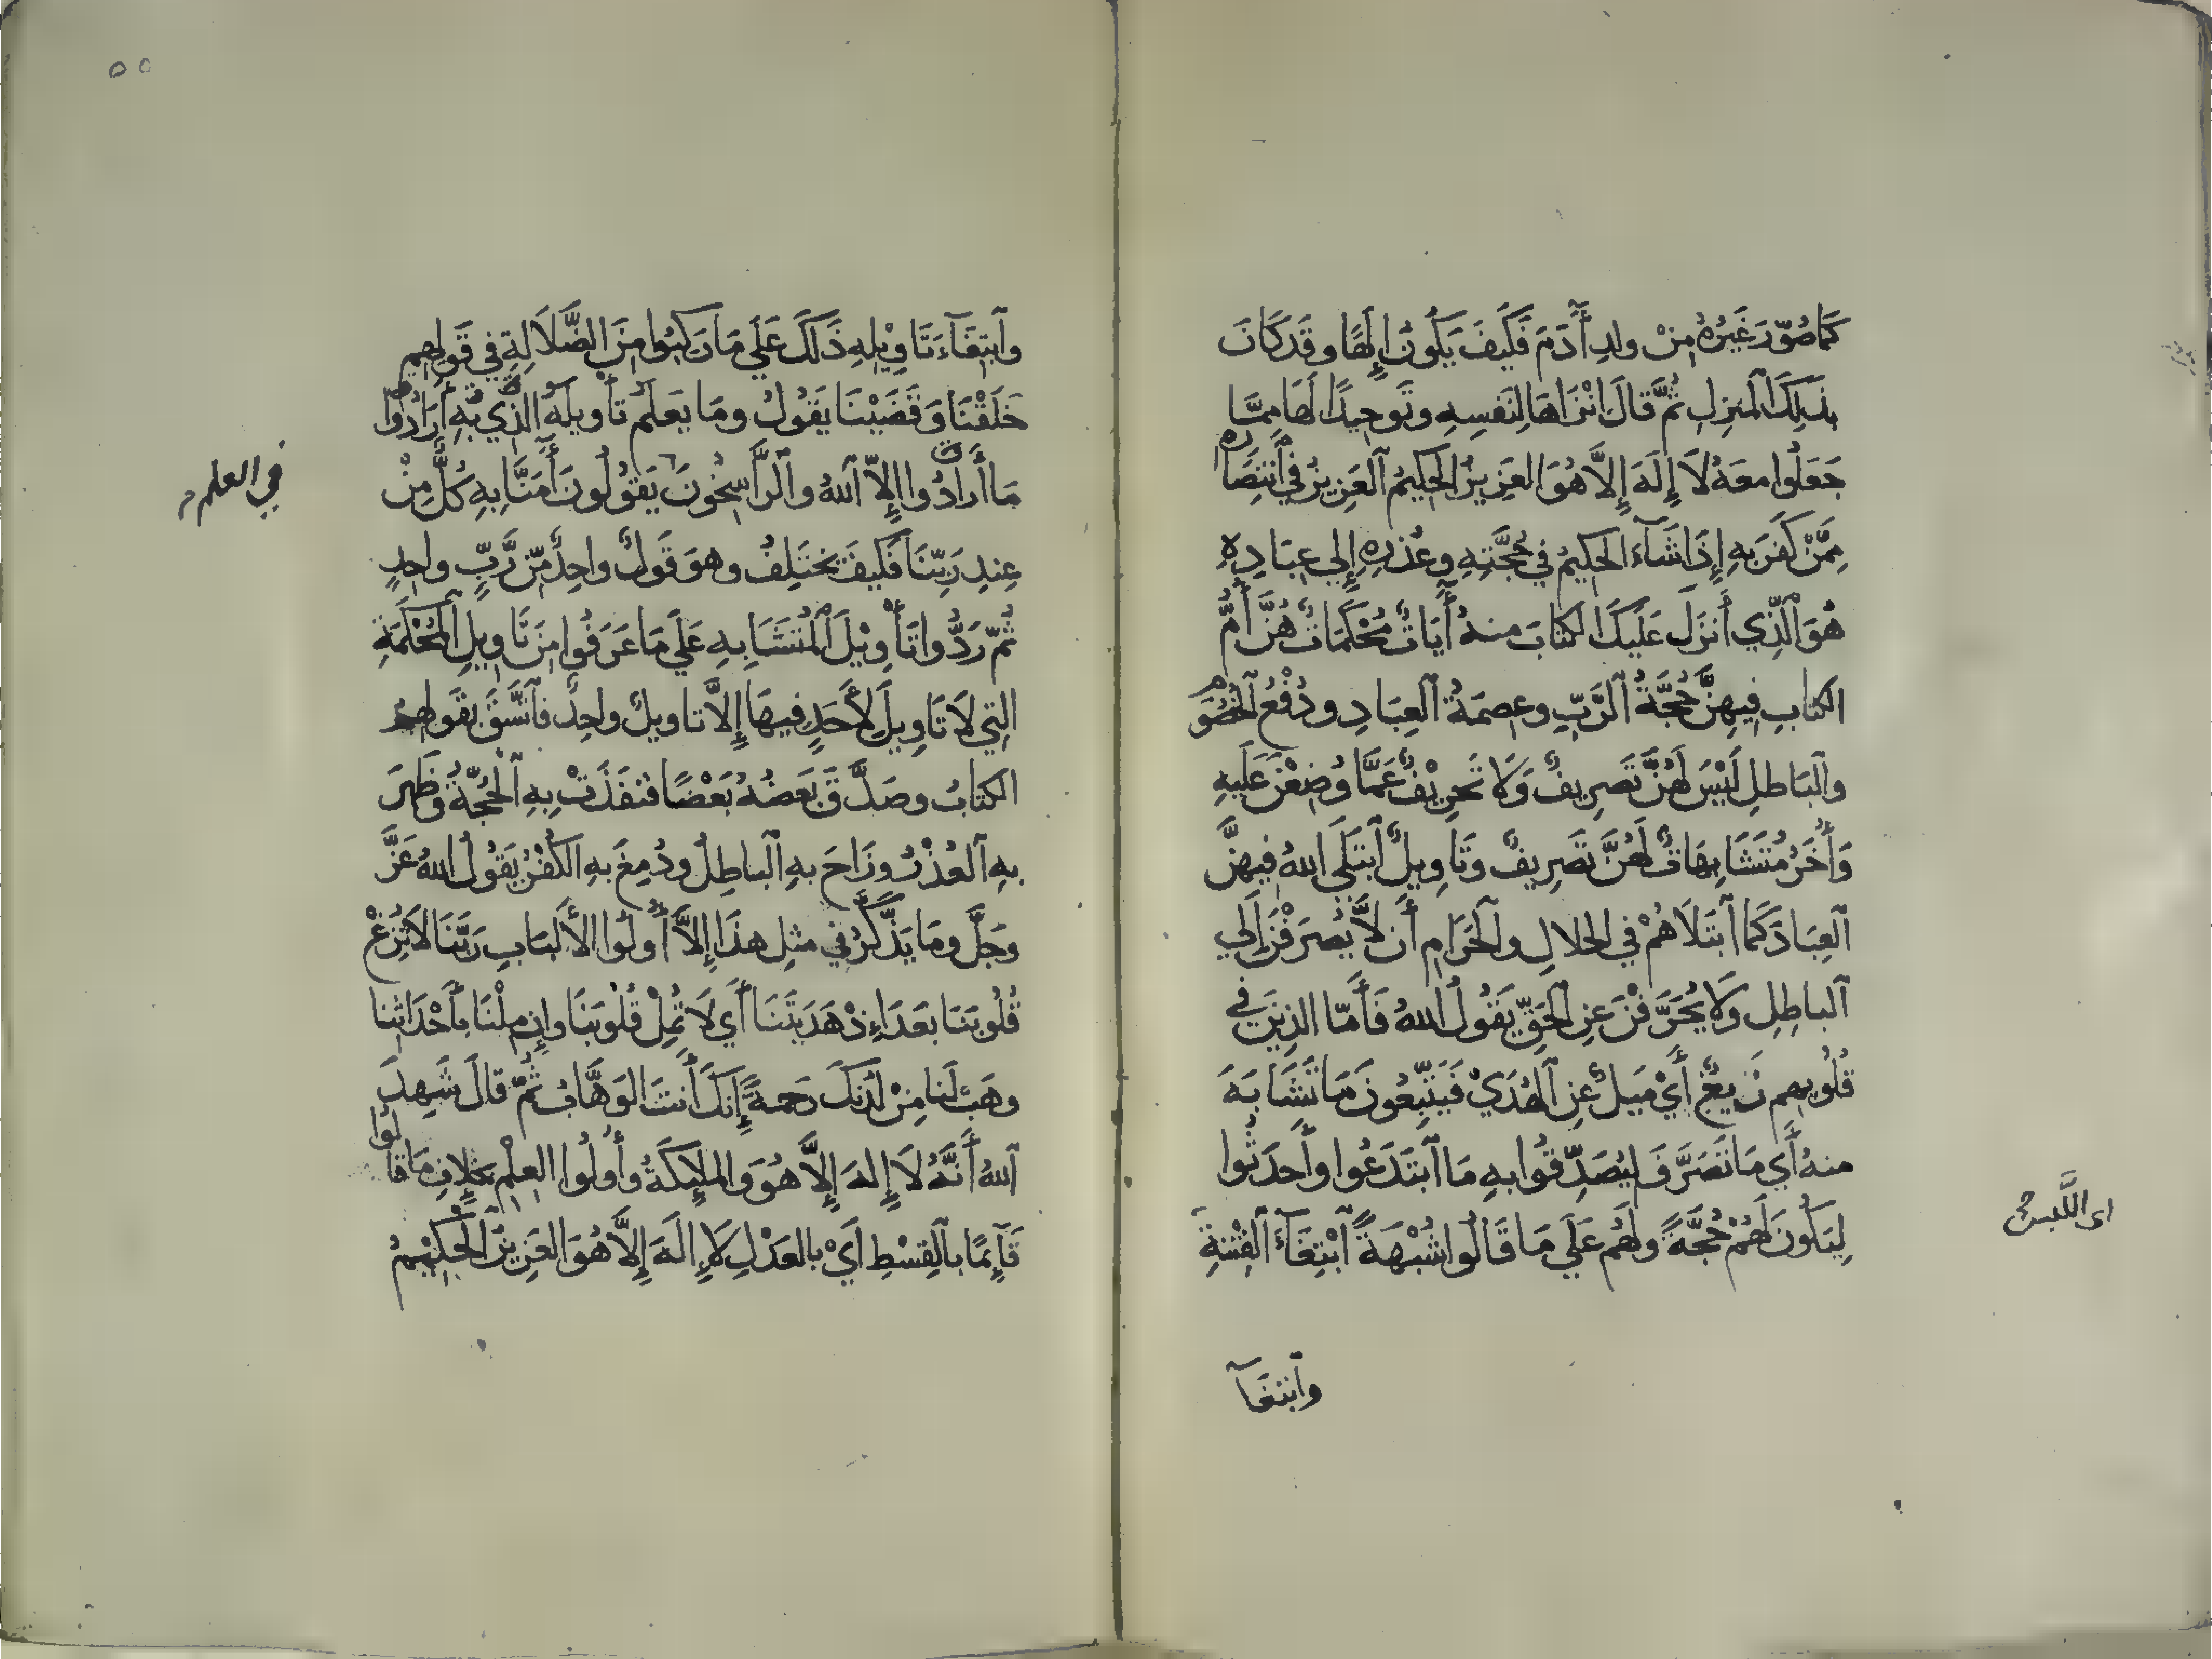 كَمَا صُوِّرَ غَيْرُهُ مِنْ ولدِ أَدَمَ فَكَيفَ يَكُونُ إِلَهًا وقَد كَانَ
بذَلِكَ المنزِلِ ثُمَّ قَالَ انْزَاهًا لِنَفسِهِ وتَوحِيدًا لَهَا مِمَّا
جَعَلُوا معَهُ لاَ إِلَهَ إِلاَّ هُوَ العَزِيزُ الحَكِيمُ ٱلعَزِيزُ في ٱنتِصَارِه
مِمَّنْ كَفَرَ بهِ إِذَا شَآءَ الحَكِيمُ في حُجَّتِهِ وعُذرِهِ إِلى عِبَادِهِ
هُوَ ٱلَّذِي أَنزَلَ عَلَيكَ الكتَابَ منهُ أَيَاتٌ مُحْكَمَاتٌ هُنَّ أُمُّ
الكتَابِ فِيهِنَّ حُجَّةُ ٱلرَّبِّ وعِصمَةُ ٱلعِبَادِ ودَفْعُ ٱلخُصُومِ
وٱلبَاطلِ لَيْسَ لَهُنَّ تَصرِيفٌ وَلاَ تَحرِيْفٌ عَمَّا وُضِعْنَ عَلَيهِ
وَأُخَرُ مُتَشَابِهَاتٌ لَهُنَّ تَصرِيفٌ وَتَاوِيلٌ ٱبتَلَى اللهُ فِيهِنَّ
ٱلعِبَادَ كَمَا ٱبتَلاَهُمْ في الحلالِ وٱلحَرَامِ أَن لاَّ يُصرَفْنَ إِلَى
ٱلباطِلِ وَلاَ يُحَرَّفْنَ عَنِ ٱلحَقِّ يَقُولُ اللهُ فَأَمّا الذِينَ فِي
قُلُوبِهِم زَيغٌ أَيْ مَيلٌ عَنِ ٱلهُدَيْ فَيَتَّبِعُونَ مَا تَشَابَهَ
منهُ أَي مَا تَصَرَّفَ ليُصَدِّقُوا بهِ مَا ٱبتَدَعُوا وأَحدَثُوا
لِيَكُونَ لَهُمْ حُجَّةً ولَهُم عَلَي مَا قَالُوا شُبْهَةً ٱبْتِغَآءَ ٱلفِتْنَةِ
اى اللَّبس
وٱبتغَآ
٥٥
وٱبتِغَآءَ تَاوِيْلِهِ ذَلكَ عَلَي مَا رَكِبُوا مِنَ الضَّلاَلةِ في قَولِهِم
خَلَقْنَا وَقَضَيْنَا يَقُولُ ومَا يَعلَمُ تَأويلَهُ الذِي بهِ أَرَادُوا
مَا أَرَادُوا إِلاّ ٱللهُ وٱلرَّاسِخُونَ يَقُولُونَ أَمَنَّا بِهِ كُلٌّ مِنْ
في العلم
عِندِ رَبِّنَا فَكَيفَ يختَلِفُ وهوَ قَولٌ واحِدٌ مِّن رَّبٍّ واحِدٍ
ثُمّ رَدُّوا تَأْوِيْلَ ٱلمُتَشَابِهِ عَلَي مَا عَرَفُوا مِن تَاوِيلِ ٱلمُحْكَمَةِ
التِي لاَ تَاوِيلَ لِأَحَدٍ فِيهَا إِلاَّ تاويلٌ واحِدٌ فٱتَّسَقَ بقَولِهِم
الكتابُ وصَدَّقَ بَعضُهُ بَعْضًا فنفَذَتْ بِهِ ٱلْحُجَّةُ وظَهَرَ
بهِ ٱلعُذْرُ وزَاحَ بهِ ٱلباطِلُ ودُمِغَ بهِ الكُفْرُ يَقُولُ اللهُ عَزَّ
وجَلَّ ومَا يَذَّكَّرُ في مثلِ هذَا إِلاَّ أُولُوا الأَلبَابِ رَبَّنَا لاَ تُزِغْ
قُلُوبَنَا بعَدَ إِذْ هَدَيتَنَا أَي لاَ تُمِلْ قُلُوبَنَا وإِن مِلْنَا بِأَحْدَاثنا
وهَبْ لَنا مِنْ لَدُنكَ رَحمةً إِنكَ أَنتَ الوَهَّابُ ثُمّ قالَ شَهِدَ
ٱللهُ أَنَّهُ لاَ إِلهَ إِلاَّ هُوَ وَالملَٰئِكَةُ وأُولُوا العِلْمِ بخلاَفِ مَا قَالُوا
قَآئِمًا بٱلقِسْطِ أَيْ بالعَدْلِ لاَ إِلَهَ إِلاَّ هُوَ العَزِيزُ ٱلحَكِيْمُ